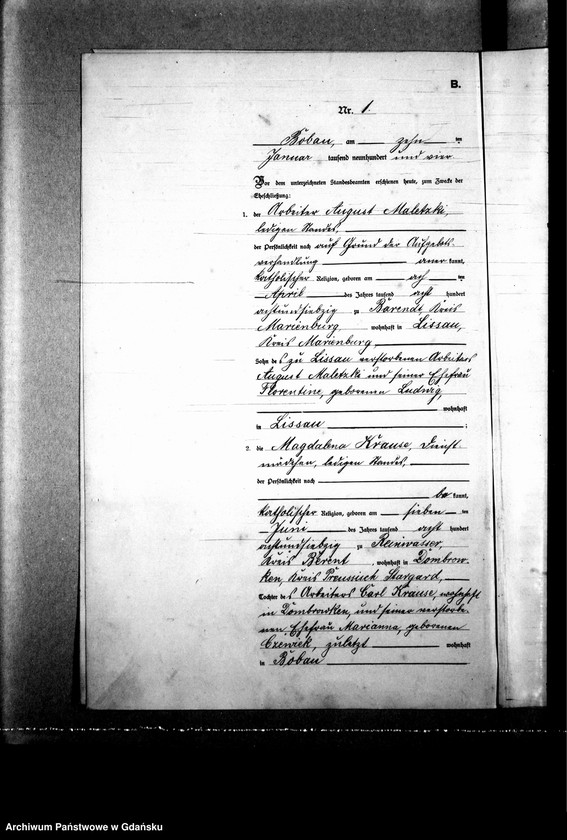 B.
Nr. 1
Bobau, am zehn ten
Januar tausend neunhundert und vier
Vor dem unterzeichneten Standesbeamten erschienen heute, zum Zwecke der
Eheschließung:
1. der Arbeiter August Maletzki,
ledigen Standes,
der Persönlichkeit nach auf Grund der Aufgebots-
verhandlung anerkannt,
katholischer Religion, geboren am acht ten
April des Jahres tausend acht hundert
achtundsiebzig zu Barendt Kreis
Marienburg, wohnhaft in Lissau,
Kreis Marienburg
Sohn des zu Lissau verstorbenen Arbeiters
August Maletzki und seiner Ehefrau
Florentine, geborenen Ludwig,
wohnhaft
in Lissau ;
2. die Magdalena Krause, Dienst-
mädchen, ledigen Standes,
der Persönlichkeit nach
bekannt,
katholischer Religion, geboren am sieben ten
Juni des Jahres tausend acht hundert
achtundsiebzig zu Reinwasser,
Kreis Berent, wohnhaft in Dombrow-
ken, Kreis Preussisch Stargard,
Tochter des Arbeiters Carl Krause, wohnhaft
in Dombrowken, und seiner verstorbe-
nen Ehefrau Marianna, geborenen
zuletzt wohnhaft
in Bobau
Archiwum Państwowe w Gdańsku